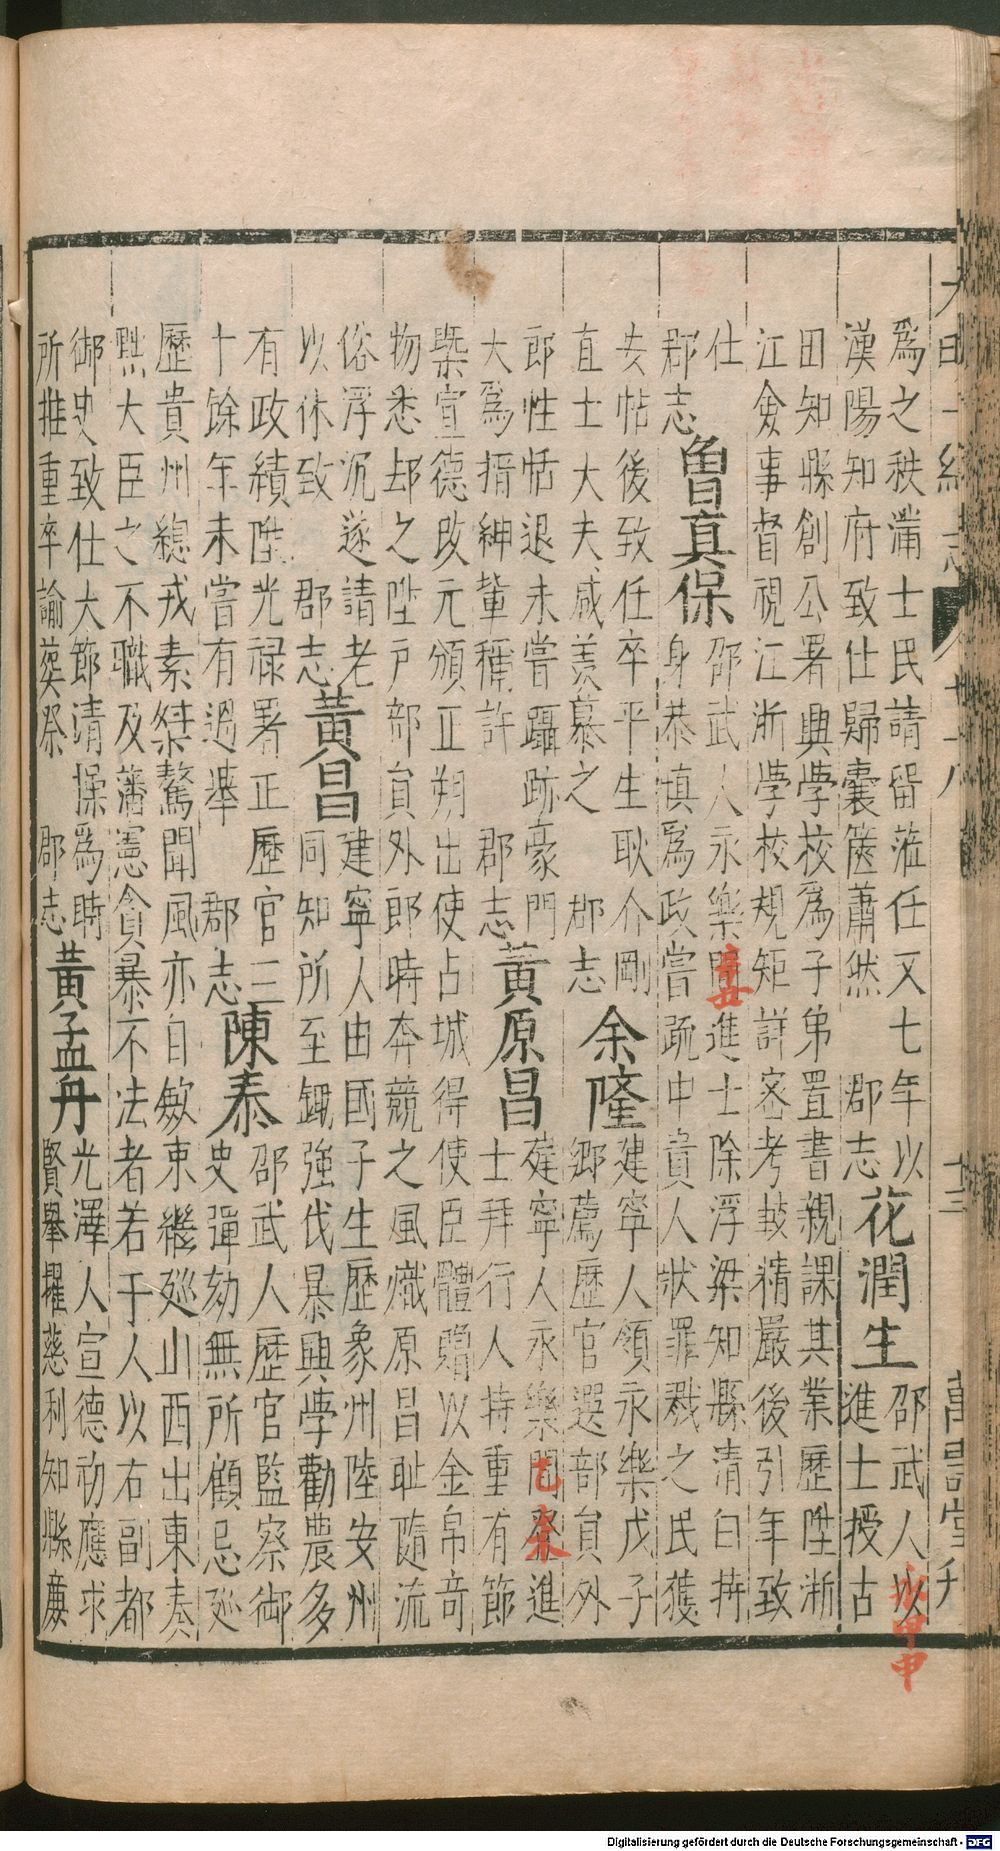 大明一統志 卷七十八 十三 萬壽堂刊
為之秩滿士民請留蒞任又七年以
漢陽知府致仕歸囊篋蕭然 郡志
花潤生
邵武人以
永甲申
進士授古
田知縣創公署興學校為子弟置書親課其業歷陞浙
江僉事督視江浙學校規矩詳密考覈精嚴後引年致
仕
郡志
魯真保
邵武人永樂間進士除浮梁知縣清白持
辛丑
身恭慎為政嘗疏中貴人狀罪戮之民獲
安帖後致仕卒平生耿介剛
直士大夫咸羨慕之 郡志
余隆
建寧人領永樂戊子
鄉薦歷官選部員外
郎性恬退未嘗躡跡豪門
大為搢紳輩稱許 郡志
黃原昌
建寧人永樂間登進
乙未
士拜行人持重有節
槩宣德改元頒正朔出使占城得使臣體贈以金帛奇
物悉却之陞戶部員外郎時奔競之風熾原昌恥隨流
俗浮沉遂請老
以休致 郡志
黃昌
建寧人由國子生歷象州陸安州
同知所至鋤強伐暴興學勸農多
有政績陞光祿署正歷官三
十餘年未嘗有過舉 郡志
陳泰
邵武人歷官監察御
史彈劾無所顧忌廵
歷貴州總戎素桀驁聞風亦自斂束繼廵山西出東奏
黜大臣之不職及藩憲貪暴不法者若干人以右副都
御史致仕大節清操為時
所推重卒諭葬祭 郡志
黃孟丹
光澤人宣德初應求
賢舉擢慈利知縣廉
Digitalisierung gefördert durch die Deutsche Forschungsgemeinschaft - DFG